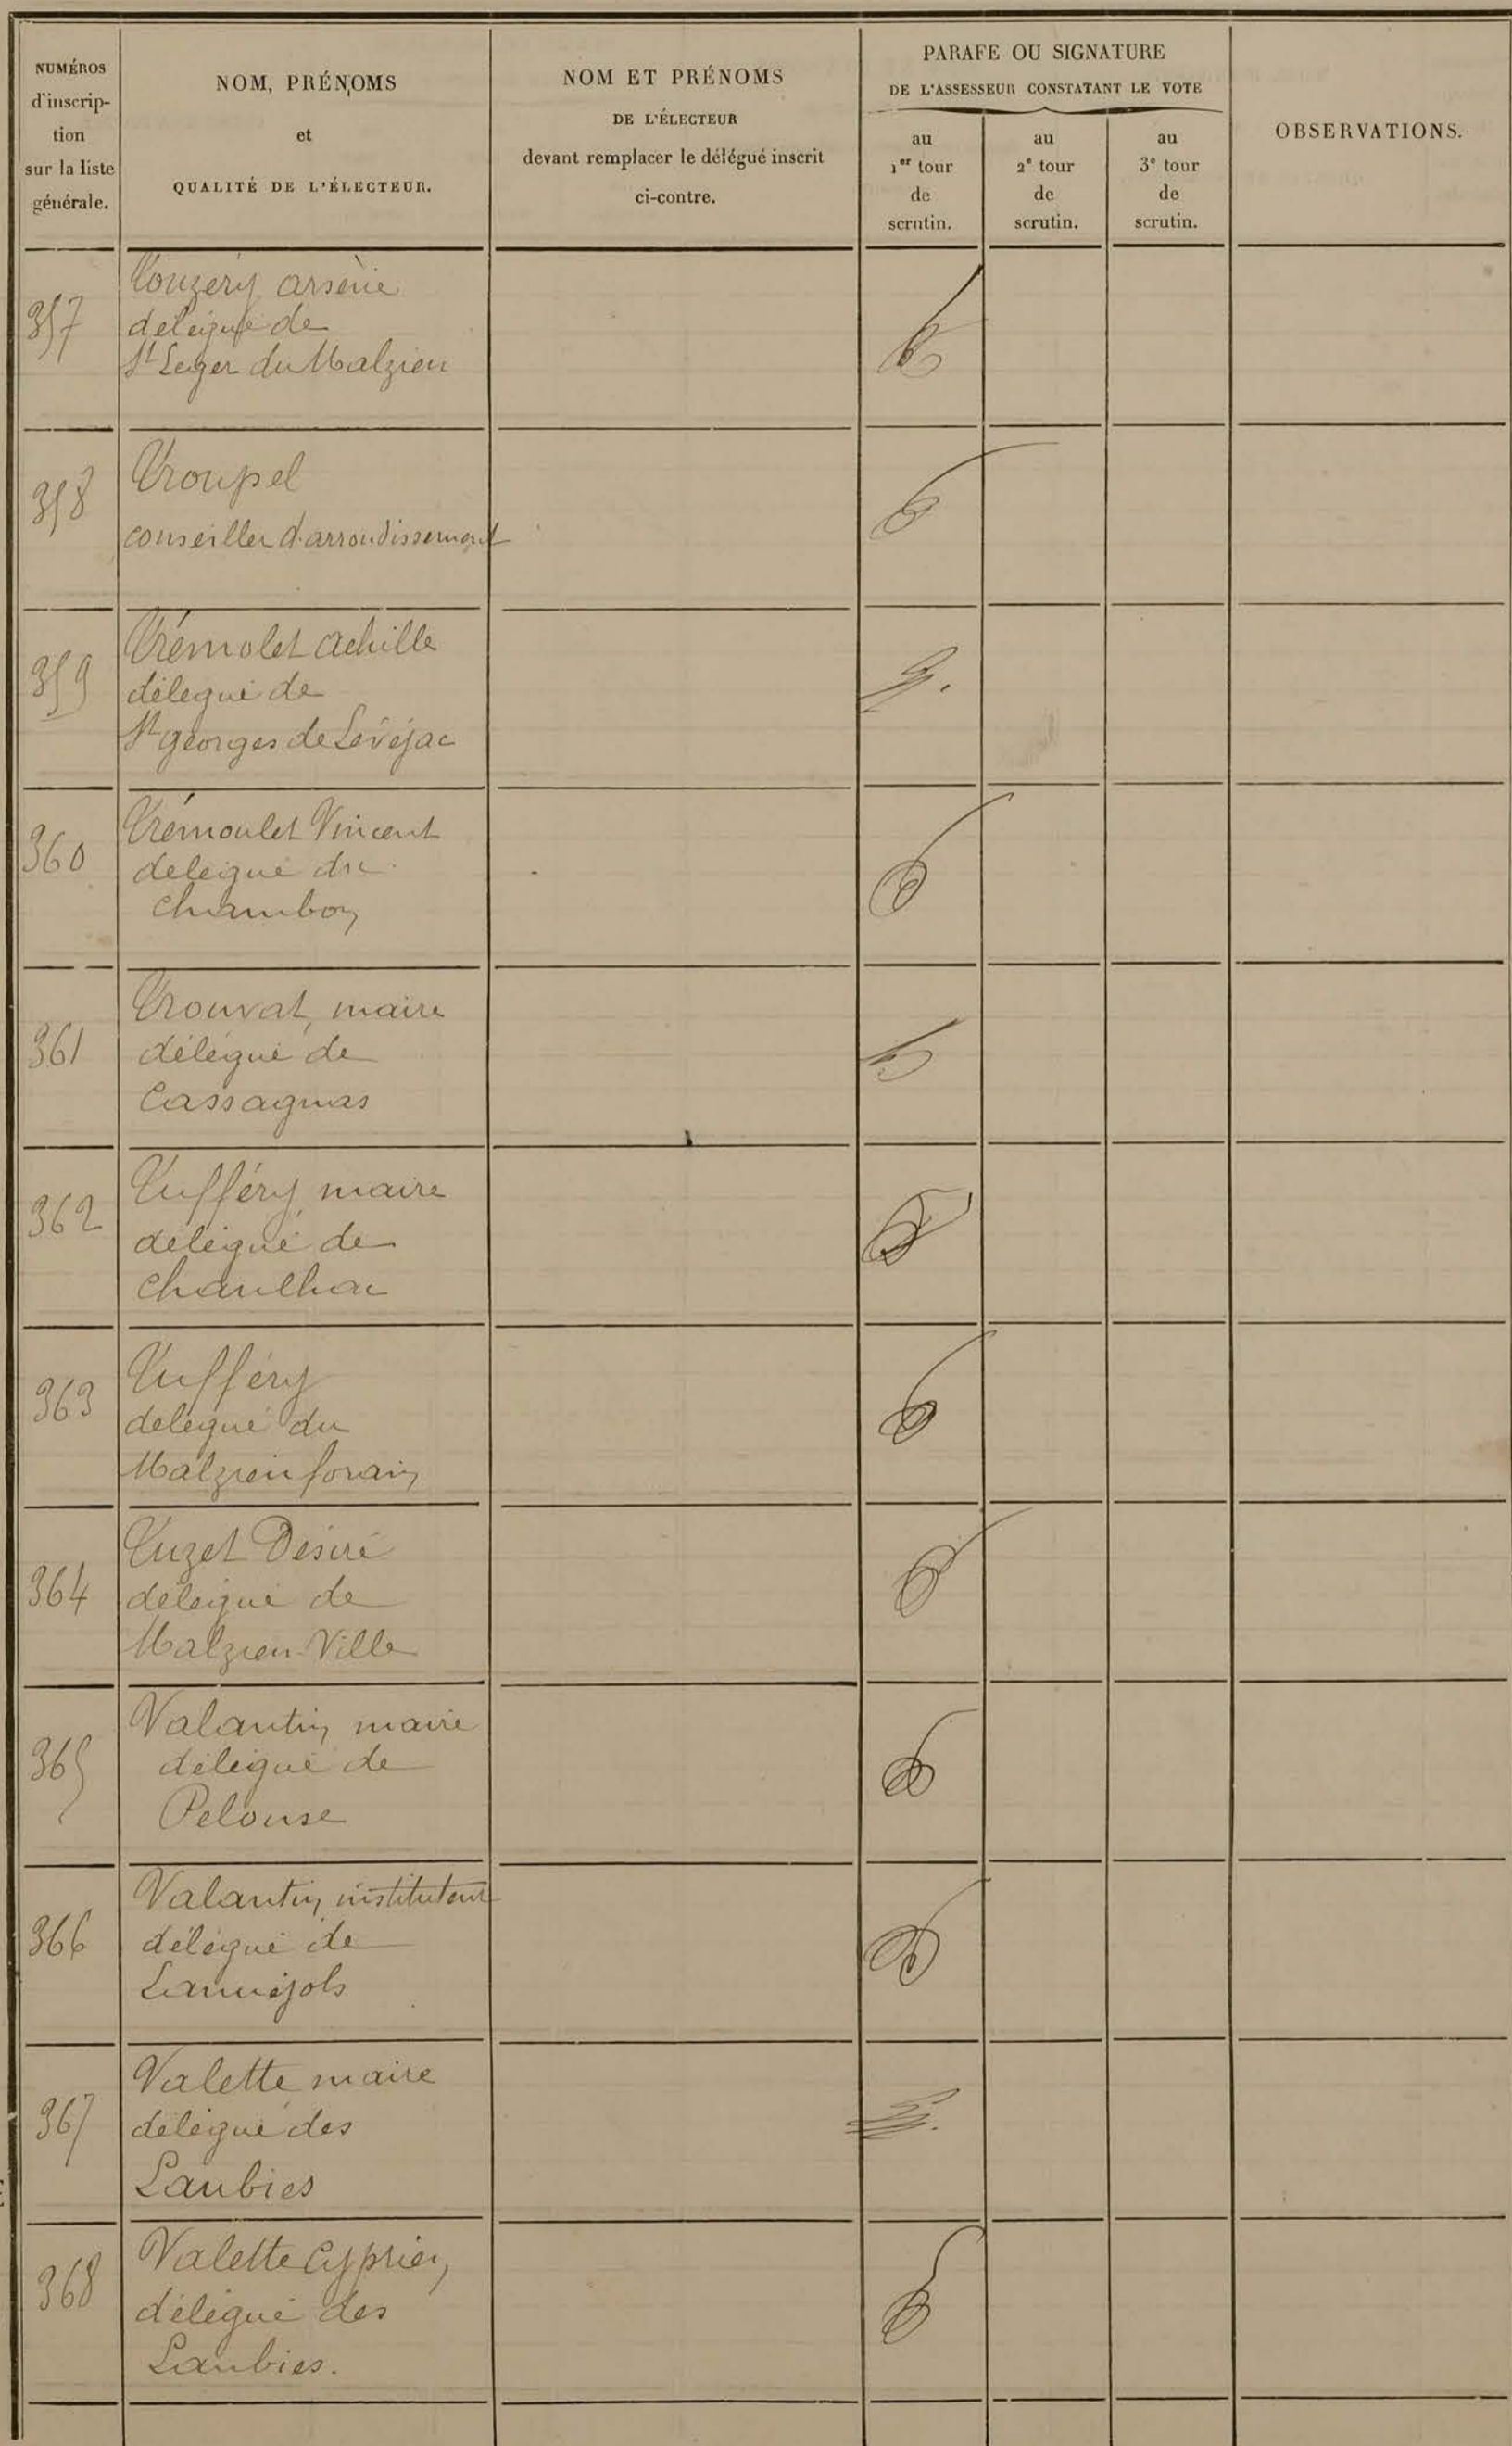 NUMÉROS
d'inscrip-
tion
sur la liste
générale.
NOM, PRÉNOMS
et
QUALITÉ DE L'ÉLECTEUR.
NOM ET PRÉNOMS
DE L'ÉLECTEUR
devant remplacer le délégué inscrit
ci-contre.
PARAFE OU SIGNATURE
DE L'ASSESSEUR CONSTATANT LE VOTE
au
1er tour
de
scrutin.
au
2e tour
de
scrutin.
au
3e tour
de
scrutin.
OBSERVATIONS.
357
Touzery arsène
délégué de
St Leger du Malzieu
358
Troupel
conseiller d'arrondissement
359
Trémolet achille
délegué de
St georges de Lévéjac
360
Trémoulet Vincent
délégué du
Chambon
361
Trouvat, maire
délégué de
Cassagnas
362
Tufféry, maire
délégué de
Chaulhac
363
Tufféry
délégué du
Malzieu forain
364
Tuzet Désiré
délégué de
Malzieu-Ville
365
Valantin, maire
délégué de
Pelouse
366
Valantin, instituteur
délégué de
Lanuéjols
367
Valette maire
délégué des
Laubies
368
Valette Cyprien,
délégué des
Laubies.